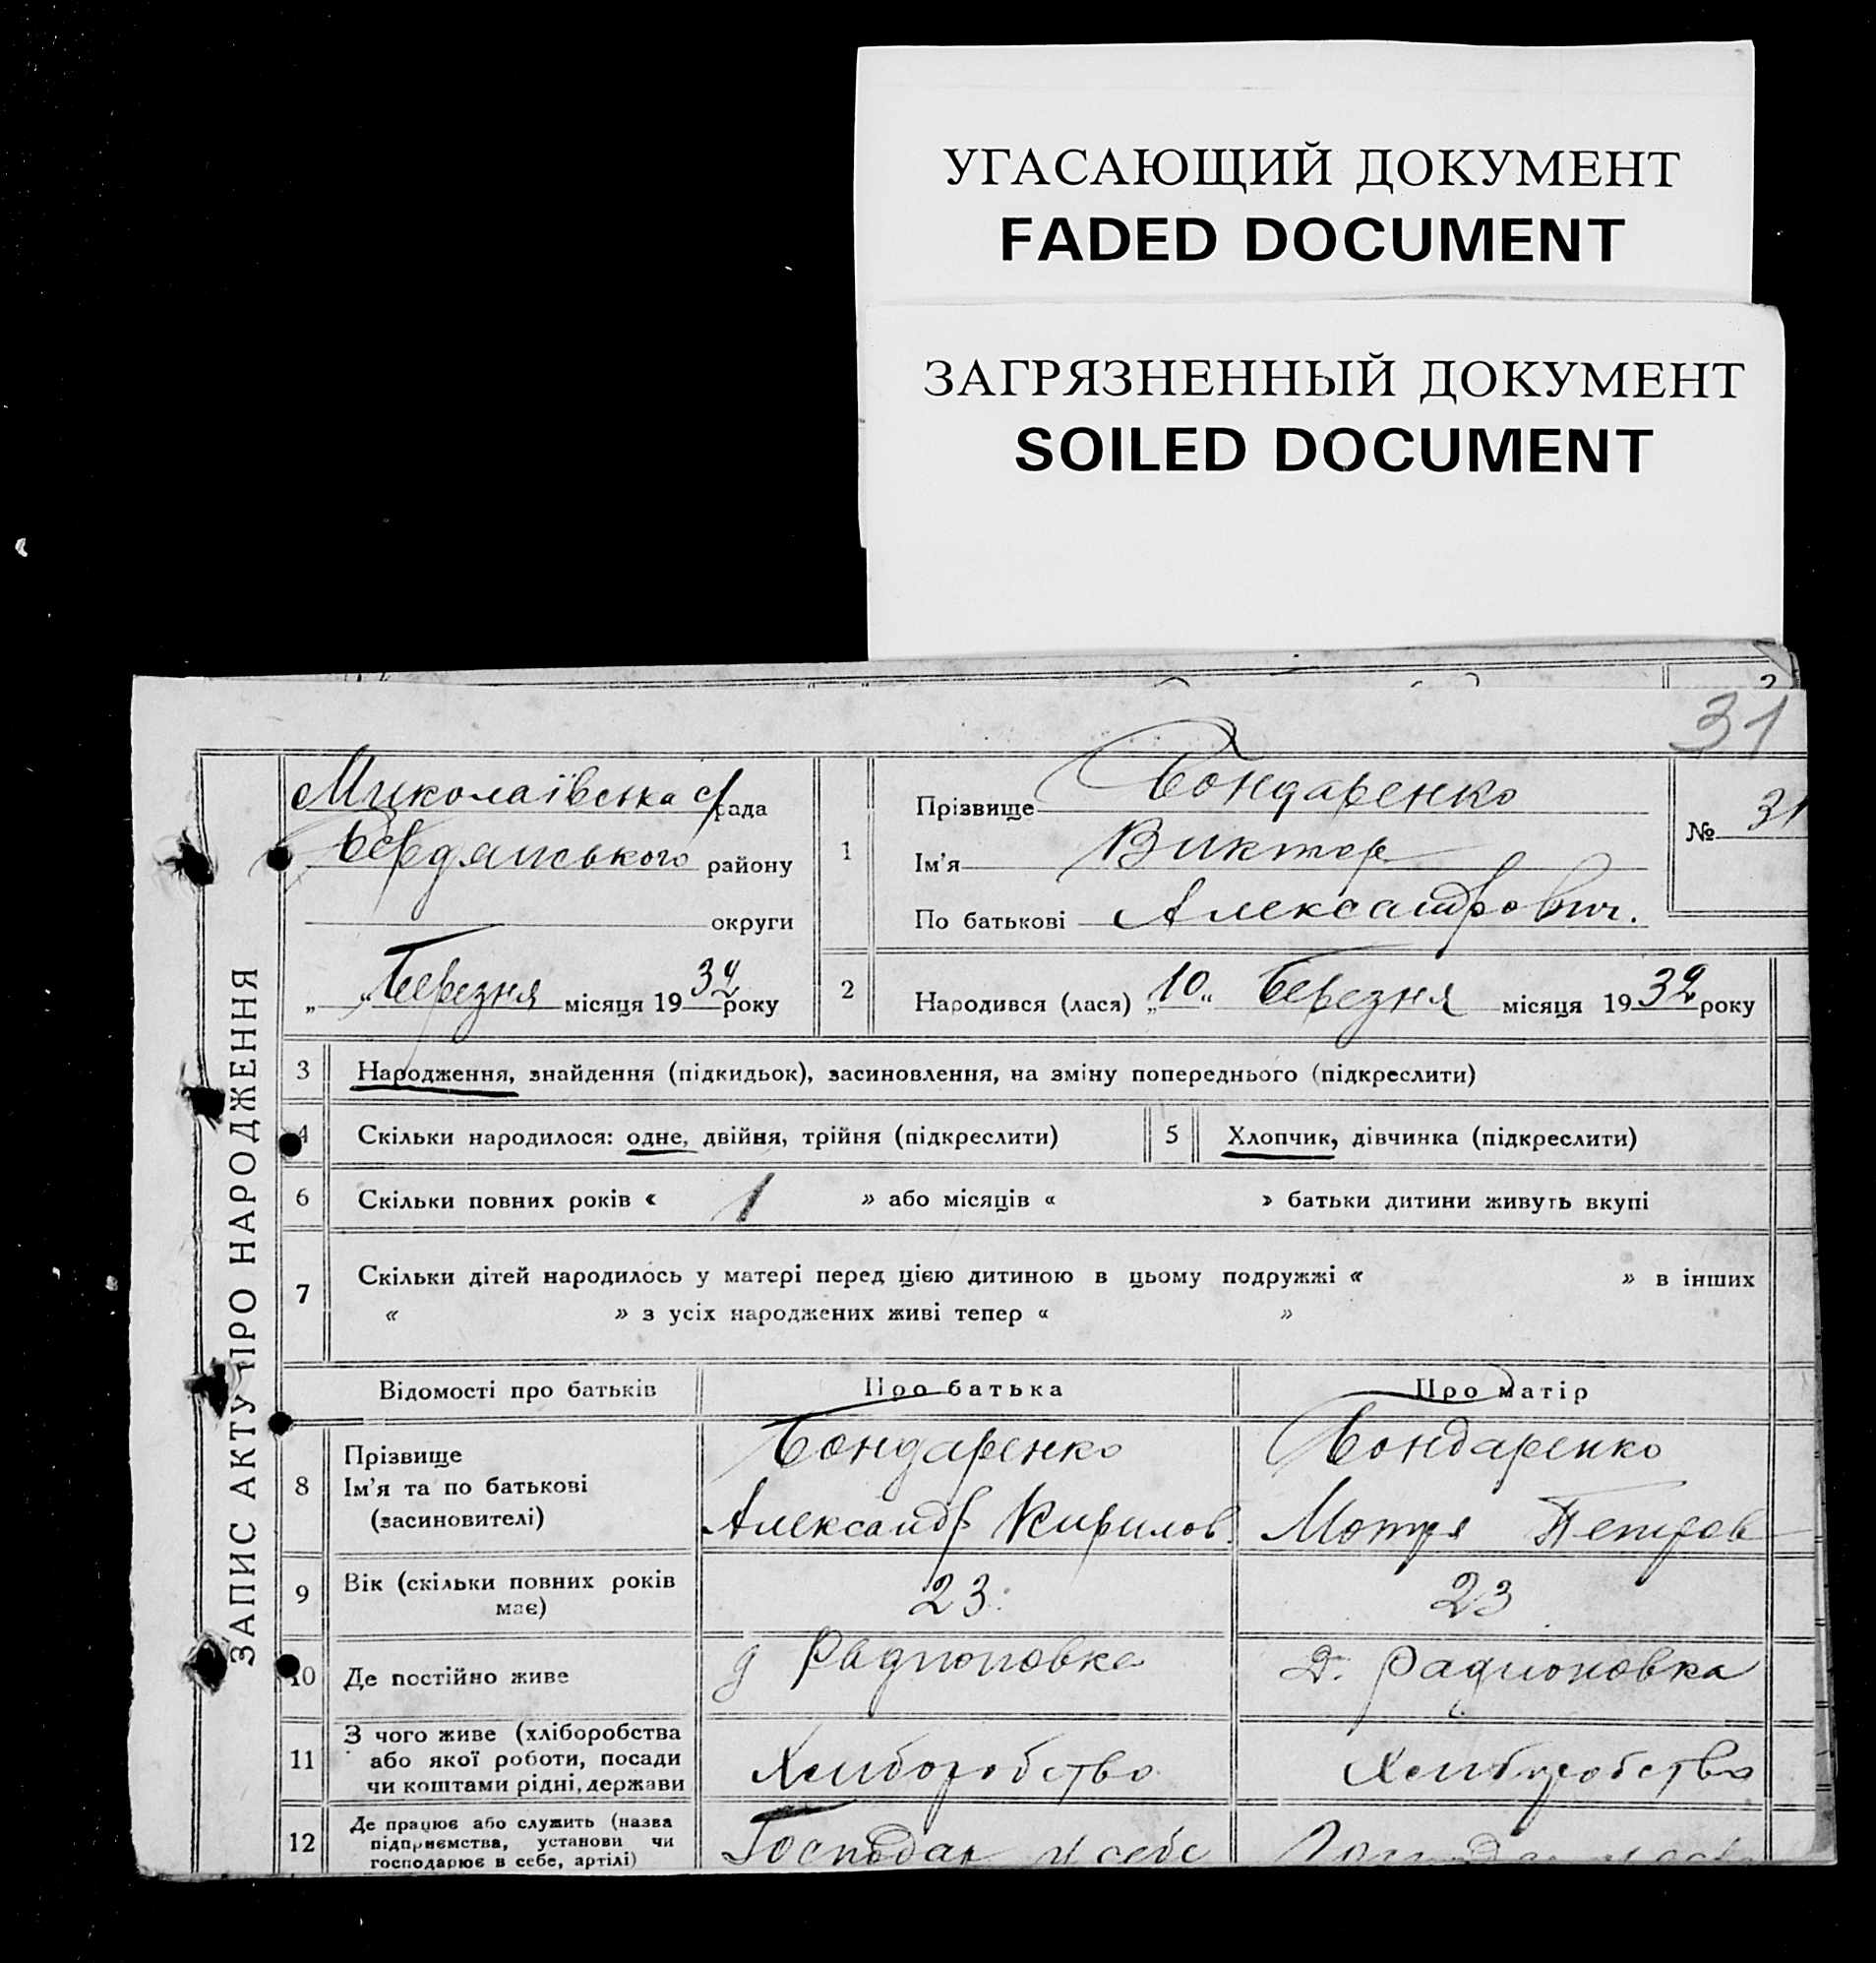 УГАСАЮЩИЙ ДОКУМЕНТ
FADED DOCUMENT
ЗАГРЯЗНЕННЫЙ ДОКУМЕНТ
SOILED DOCUMENT
31
ЗАПИС АКТУ ПРО НАРОДЖЕННЯ
Миколаївська с/рада
Бердянського району
округи
„ “ Березня місяця 1932 року
1
Прізвище Бондаренко
Ім'я Виктор
По батькові Александрович.
№ 31
2
Народився (лася) „10“ Березня місяця 1932 року
3 Народження, знайдення (підкидьок), засиновлення, на зміну попереднього (підкреслити)
4 Скільки народилося: одне, двійня, трійня (підкреслити)
5 Хлопчик, дівчинка (підкреслити)
6 Скільки повних років « 1 » або місяців « » батьки дитини живуть вкупі
7 Скільки дітей народилось у матері перед цією дитиною в цьому подружжі « » в інших
« » з усіх народжених живі тепер « »
Відомості про батьків Про батька Про матір
8 Прізвище
Ім'я та по батькові
(засиновителі)
Бондаренко
Александр Кирилов.
Бондаренко
Мотря Петров
9 Вік (скільки повних років
має)
23. 23
10 Де постійно живе
д Радионовка Д. Радионовка
11 З чого живе (хліборобства
або якої роботи, посади
чи коштами рідні, держави
Хлиборобство Хлиборобство
12 Де працює або служить (назва
підприємства, установи чи
господарює в себе, артілі)
Господар у себе